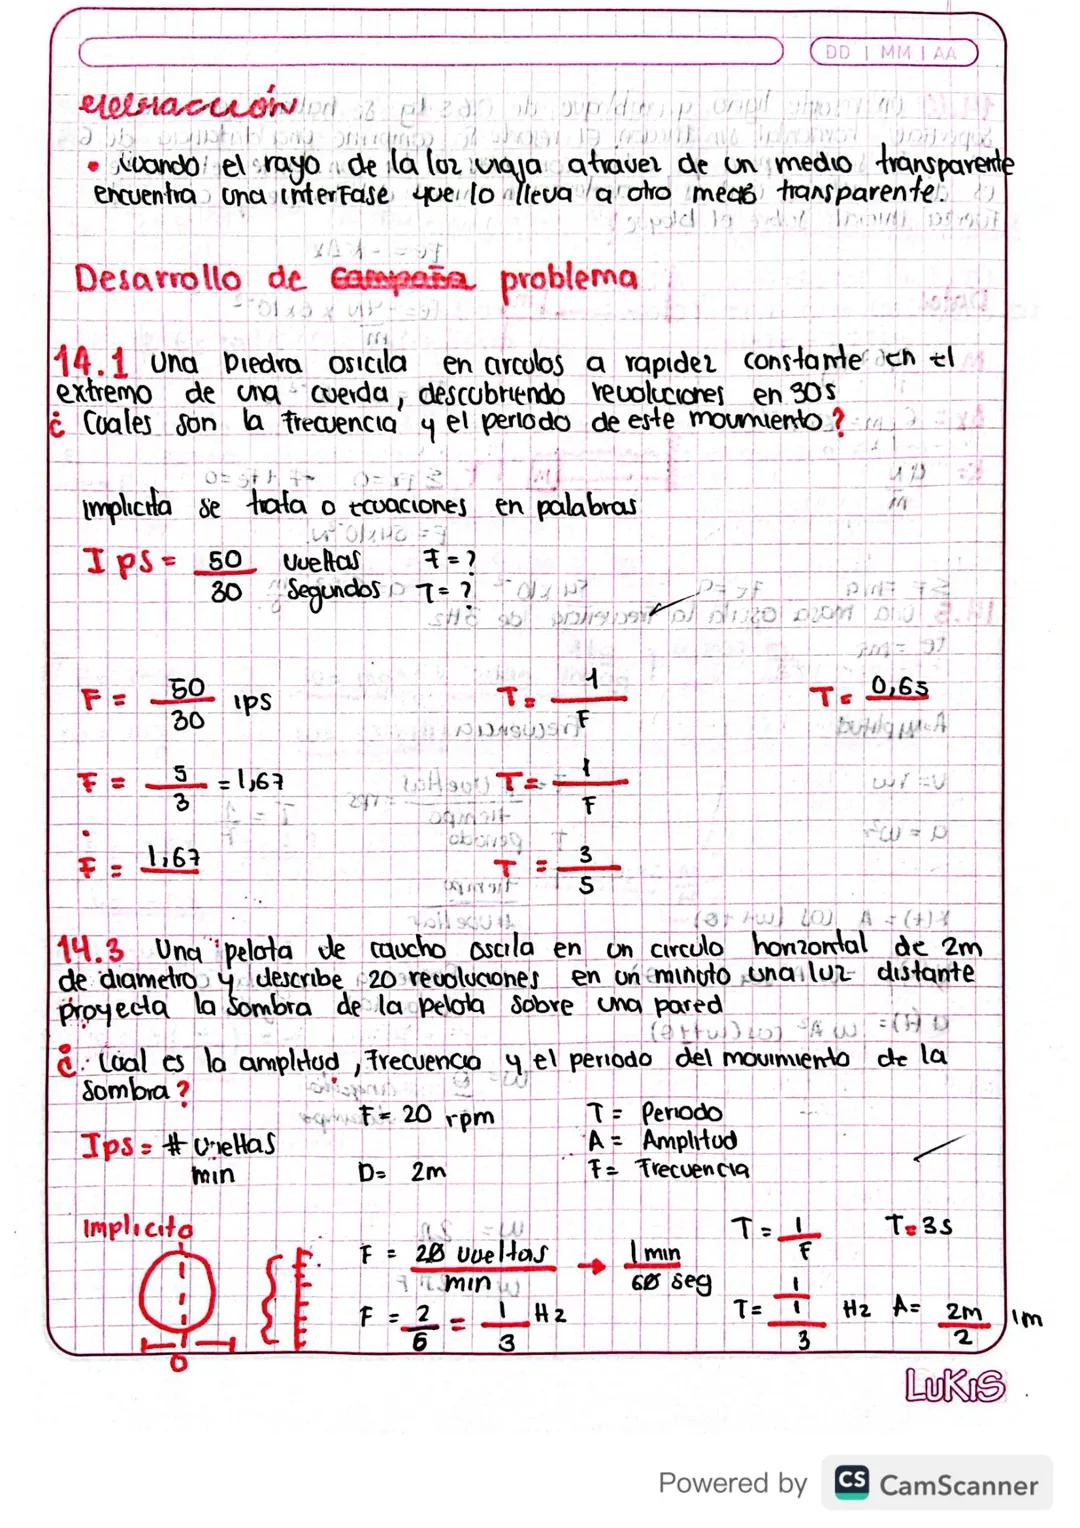 DD | MM | AA
• cuando el rayo de la luz viaja atravez de un medio transparente
encuentra una interfase que lo lleva a otro medio transparente.
Desarrollo de campaña problema
14.1 Una piedra osicila en circulos a rapidez constante en el
extremo de una cuerda, descubriendo revoluciones en 30s
¿ Cuales son la frecuencia y el periodo de este movimiento?
implicita se trata o ecuaciones en palabras
Ips = 50 vueltas F = ?
30 segundos T = ?
F = 50/30 ips T = 1/F T = 0,6s
F = 5/3 = 1,67 T = 1/F
F = 1,67 T = 3/5
14.3 Una pelota de caucho oscila en un circulo horizontal de 2m
de diametro y describe 20 revoluciones en un minuto una luz distante
proyecta la sombra de la pelota sobre una pared
¿. Cual es la amplitud, Frecuencia y el periodo del movimiento de la
Sombra?
F = 20 rpm T = Periodo
Ips = # vueltas A = Amplitud
min D= 2m F= Frecuencia
Implicito T = 1/F T=3s
F = 20 vueltas/min → 1 min/60 seg
F = 2/6 = 1/3 Hz T= 1/1/3 Hz A= 2m/2 1m
D
LUKIS
Powered by CS CamScanner